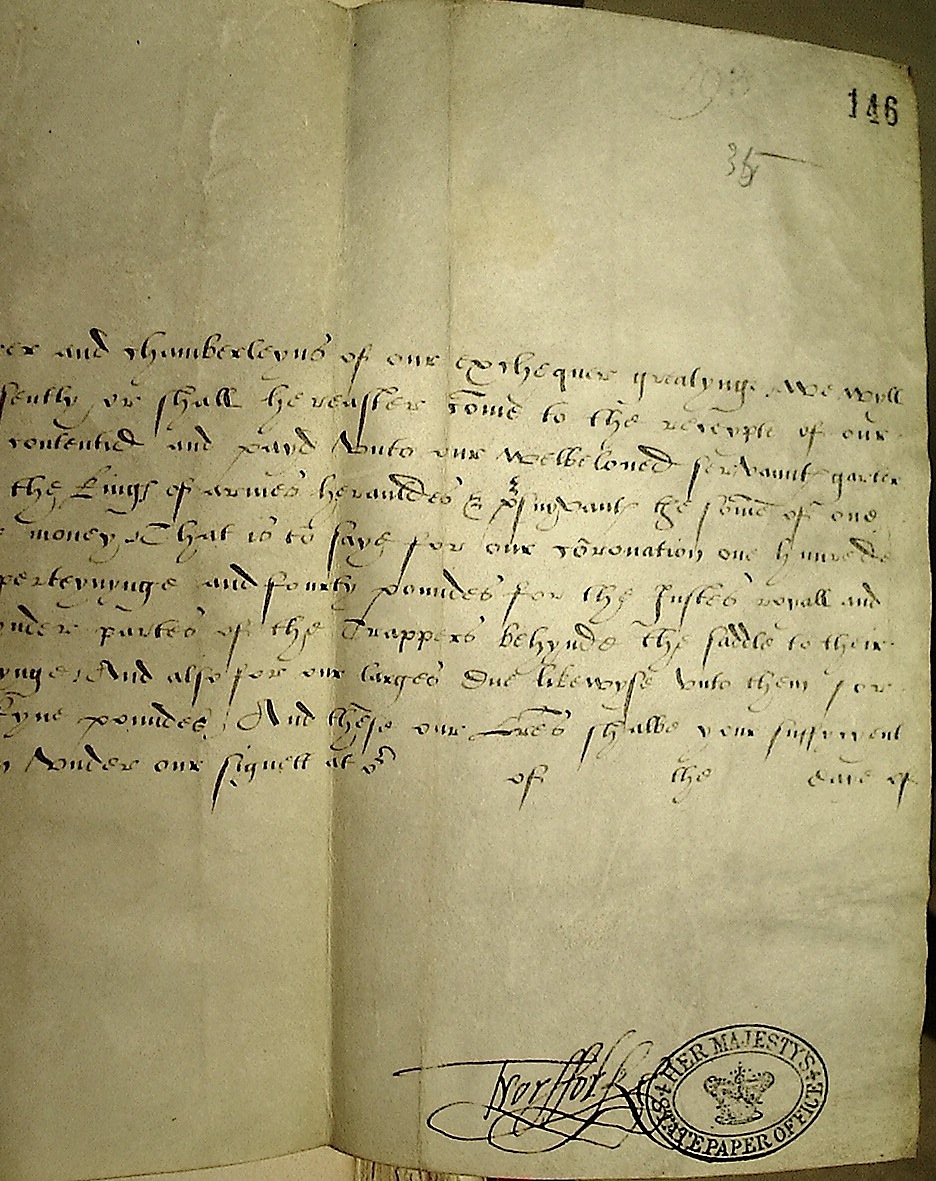 146
35
and chamberleyns of our exchequer greatynge We wyll
sently or shall hereafter come to the receypte of our
contentid and payd vnto our welbeloved servaunt garter
the kings of armes herauldes & psuyvants the some of one
money That is to saye for our coronation one hunredde
perteynynge and fourty poundes for the Justes royall and
nder partes of the Trappers behynde the saddle to their
ynge And also for our larges due likewyse vnto them for
poundes And these our Lres shalbe your suffycyent
vnder our signett at or of the daye of
Norffolk
HER MAJESTY'S STATE PAPER OFFICE